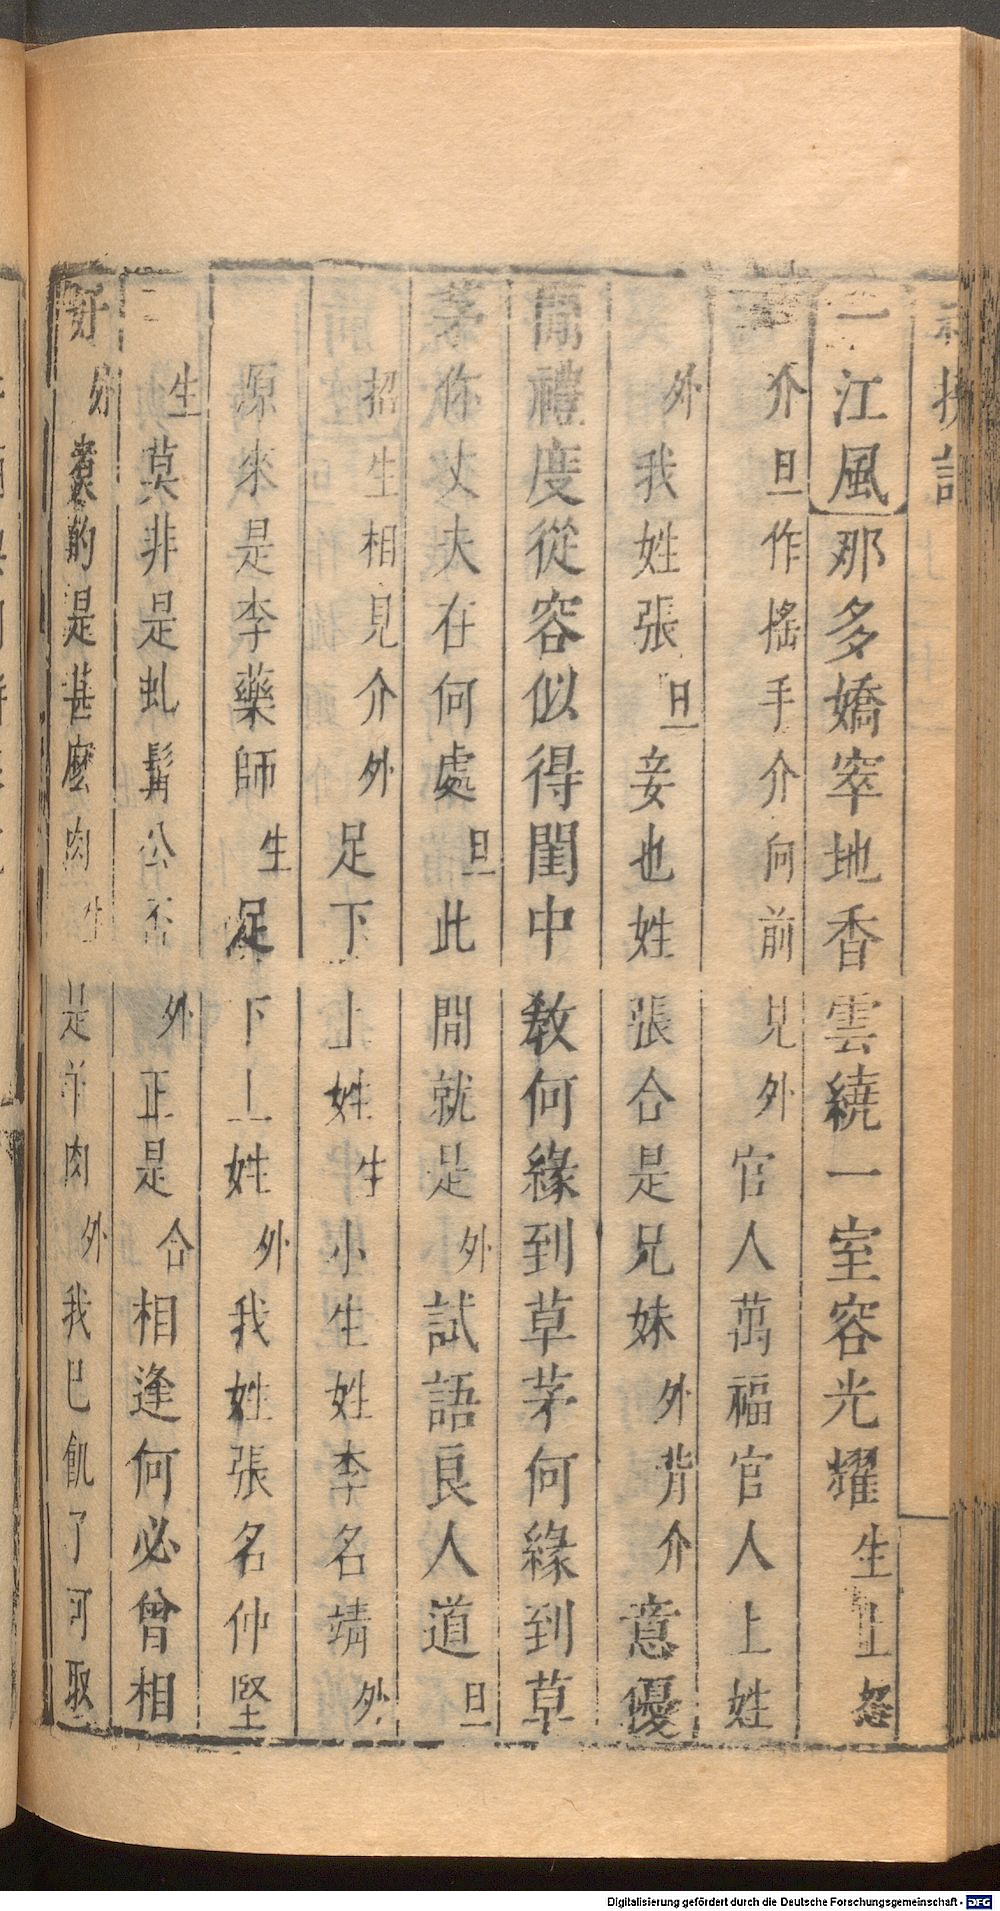 一江風那多嬌窣地香雲繞一室容光耀生上怒
介旦作搖手介向前見外官人萬福官人上姓
外我姓張旦妾也姓張合是兄妹外背介意優
閒禮度從容似得閨中敎何緣到草茅何緣到草
茅你丈夫在何處旦此間就是外試語良人道旦
招生相見介外足下上姓生小生姓李名靖外
原來是李藥師生足下上姓外我姓張名仲堅
生莫非是虬髯公否外正是合相逢何必曾相
好外煑的是甚麼肉生是羊肉外我已飢了可取
Digitalisierung gefördert durch die Deutsche Forschungsgemeinschaft - DFG